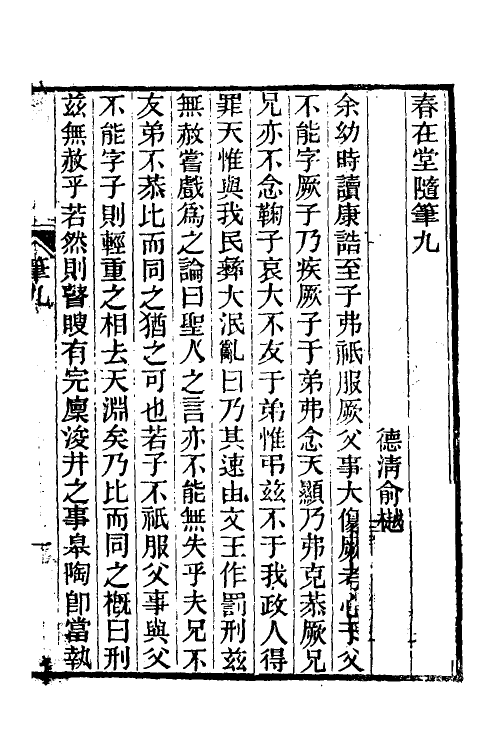 春在堂隨筆九
德清俞樾
余幼時讀康誥至子弗祇服厥父事大傷厥考心于父
不能字厥子乃疾厥子于弟弗念天顯乃弗克恭厥兄
兄亦不念鞠子哀大不友于弟惟弔兹不于我政人得
罪天惟與我民彝大泯亂曰乃其速由文王作罰刑兹
無赦嘗戲爲之論曰聖人之言亦不能無失乎夫兄不
友弟不恭比而同之猶之可也若子不祇服父事與父
不能字子則輕重之相去天淵矣乃比而同之概曰刑
兹無赦乎若然則瞽瞍有完廩浚井之事皋陶卽當執
筆九